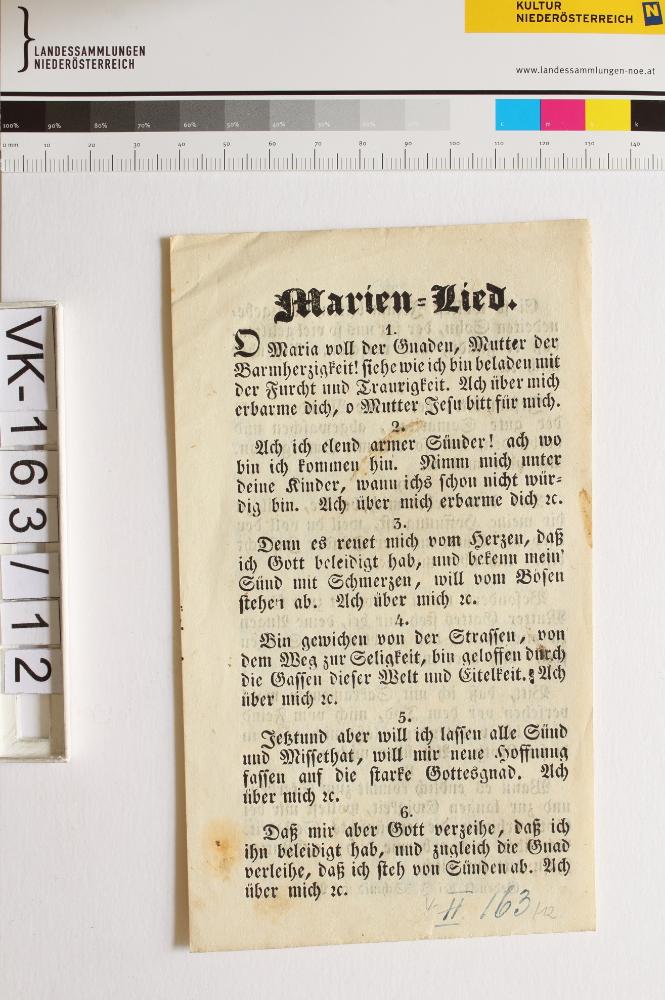 KULTUR
NIEDERÖSTERREICH N
LANDESSAMMLUNGEN
NIEDERÖSTERREICH
www.landessammlungen-noe.at
100% 90% 80% 70% 60% 50% 40% 30% 20% 10% c m y k
0 mm 10 20 30 40 50 60 70 80 90 100 110 120 130 140
VK-163/12
Marien-Lied.
1.
O Maria voll der Gnaden, Mutter der
Barmherzigkeit! siehe wie ich bin beladen mit
der Furcht und Traurigkeit. Ach über mich
erbarme dich, o Mutter Jesu bitt für mich.
2.
Ach ich elend armer Sünder! ach wo
bin ich kommen hin. Nimm mich unter
deine Kinder, wann ichs schon nicht wür-
dig bin. Ach über mich erbarme dich ꝛc.
3.
Denn es reuet mich vom Herzen, daß
ich Gott beleidigt hab, und bekenn mein'
Sünd mit Schmerzen, will vom Bösen
stehen ab. Ach über mich ꝛc.
4.
Bin gewichen von der Strassen, von
dem Weg zur Seligkeit, bin geloffen durch
die Gassen dieser Welt und Eitelkeit. Ach
über mich ꝛc.
5.
Jetztund aber will ich lassen alle Sünd
und Missethat, will mir neue Hoffnung
fassen auf die starke Gottesgnad. Ach
über mich ꝛc.
6.
Daß mir aber Gott verzeihe, daß ich
ihn beleidigt hab, und zugleich die Gnad
verleihe, daß ich steh von Sünden ab. Ach
über mich ꝛc.
V-II 163/12